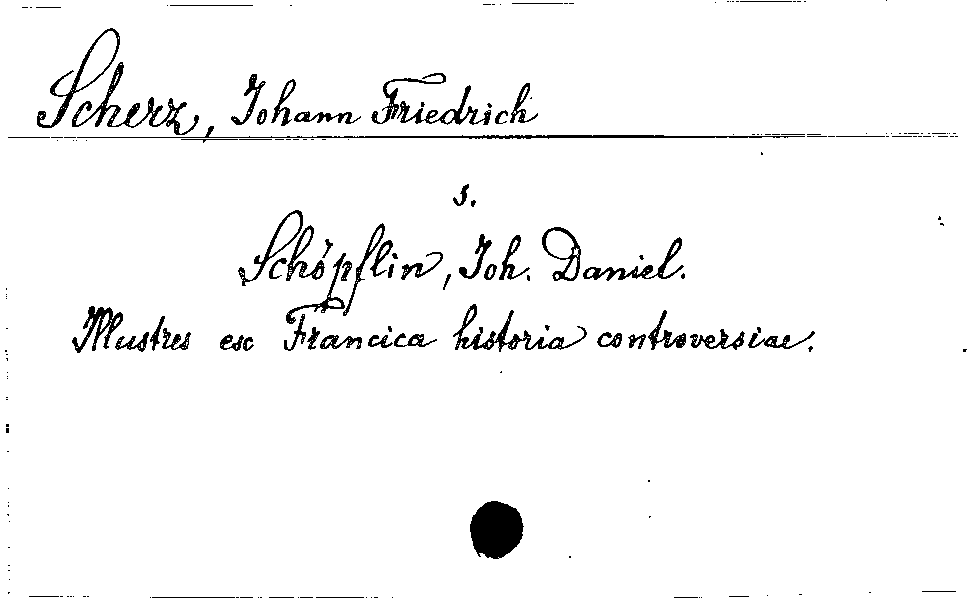 Scherz, Johann Friedrich
s.
Schöpflin, Joh. Daniel.
Illustres ex Francica historia controversiae.